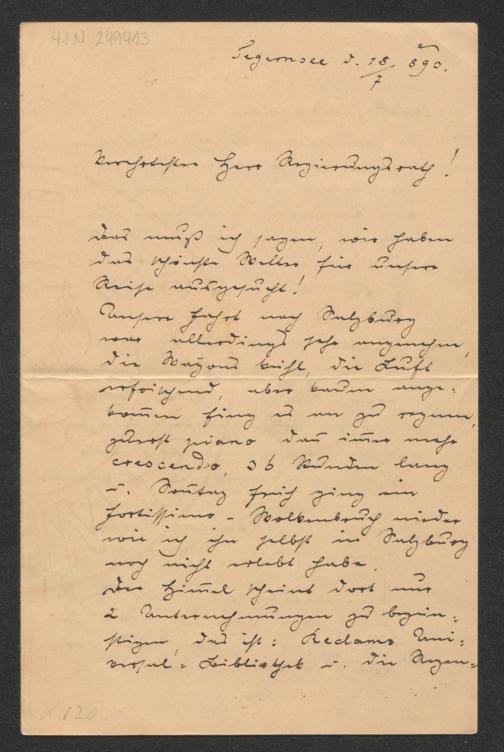 H.I.N. 249413
Tegernsee d. 18/7 890.
Verehrtester Herr Regierungsrath!
Das muß ich sagen, wir haben
das schönste Wetter für unsere
Reise ausgesucht!
Unsere Fahrt nach Salzburg
war allerdings sehr angenehm,
die Wagons kühl, die Luft
erfrischend, aber kaum ange-
kom̄en fing es an zu regnen,
zuerst piano dan̄ im̄er mehr
crescendo, 36 Stunden lang
u. Son̄tag früh ging ein
fortissimo-Wolkenbruch nieder
wie ich ihn selbst in Salzburg
noch nicht erlebt habe.
Der Him̄el scheint dort nur
2 Unternehmungen zu begün-
stigen, das ist: Reclams Uni-
versal-Bibliothek u. die Regen-
K 120